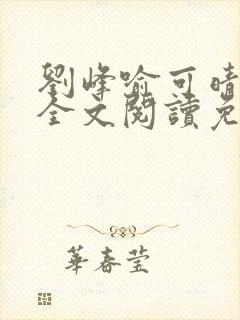 劉峰喻可晴
全文閱讀免
華春莹